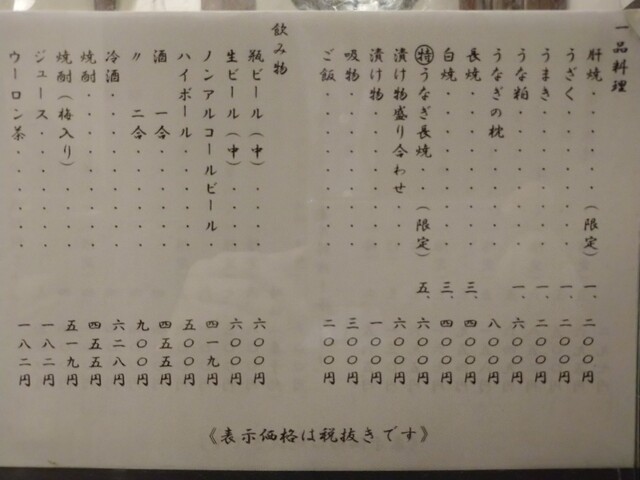 一品料理
肝焼・・・・・(限定)一、二〇〇円
うざく・・・・・・一、二〇〇円
うまき・・・・・・一、二〇〇円
うな粕・・・・・・一、六〇〇円
うなぎの枕・・・・・八〇〇円
長焼・・・・・・・三、四〇〇円
白焼・・・・・・・三、四〇〇円
㊕うなぎ長焼・(限定)五、六〇〇円
漬け物盛り合わせ・・六〇〇円
漬け物・・・・・・一〇〇円
吸物・・・・・・・三〇〇円
ご飯・・・・・・・二〇〇円
飲み物
瓶ビール(中)・・・・六〇〇円
生ビール(中)・・・・六〇〇円
ノンアルコールビール・四一九円
ハイボール・・・・・五〇〇円
酒 一合・・・・・四五五円
〃 二合・・・・・九〇〇円
冷酒・・・・・・・六二八円
焼酎・・・・・・・四五五円
焼酎(梅入り)・・・・五一九円
ジュース・・・・・・一八二円
ウーロン茶・・・・・一八二円
《表示価格は税抜きです》